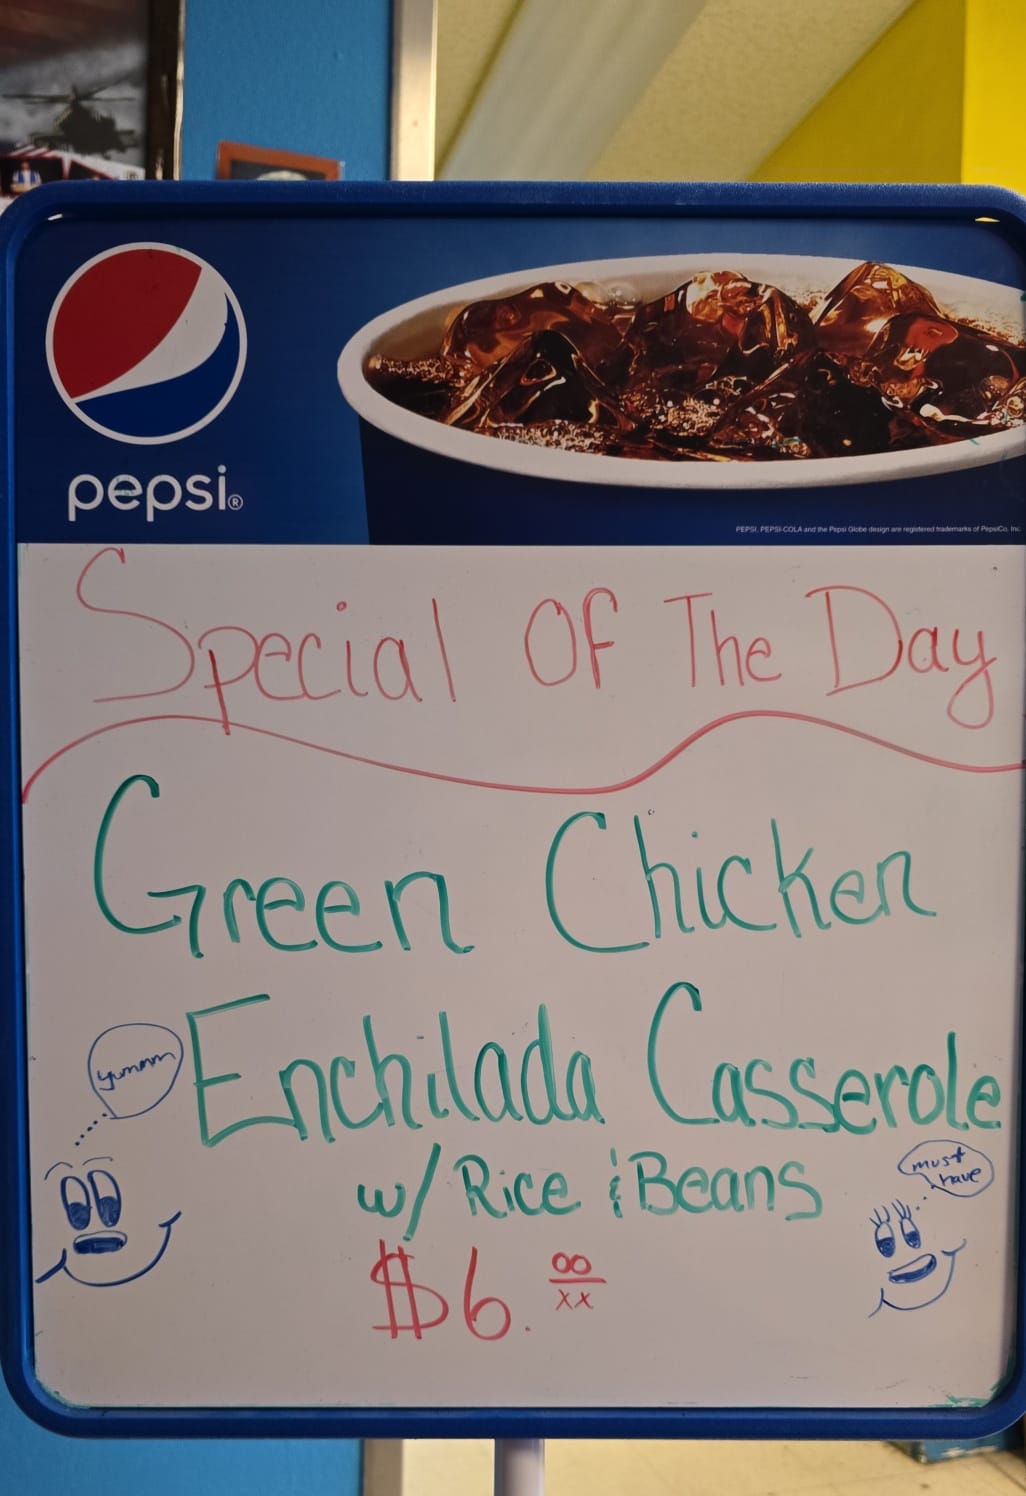 pepsi®
PEPSI, PEPSI-COLA and the Pepsi Globe design are registered trademarks of PepsiCo, Inc.
Special Of The Day
Green Chicken
Enchilada Casserole
yummm
w/ Rice & Beans
must
have
$6.00/xx